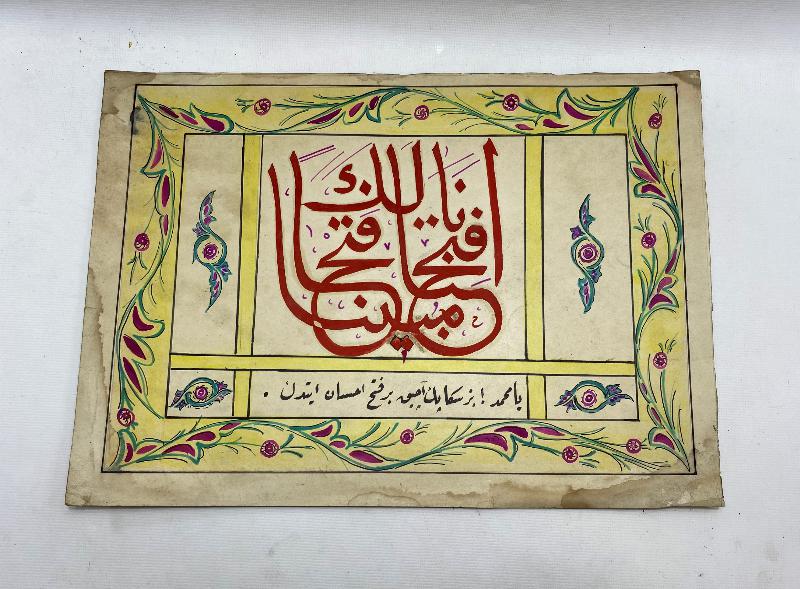 انا فتحنا لك فتحا مبينا
يا محمد ! بز سكا پك آچيق بر فتح احسان ايتدك .